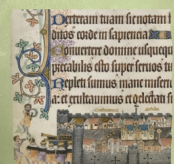 Dexteram tuam sic notam
ditos corde in sapiencia
Convertere domine usquequo
precabilis esto super servos tu
Repleti sumus mane miseri
a: et exultavimus et delectati s